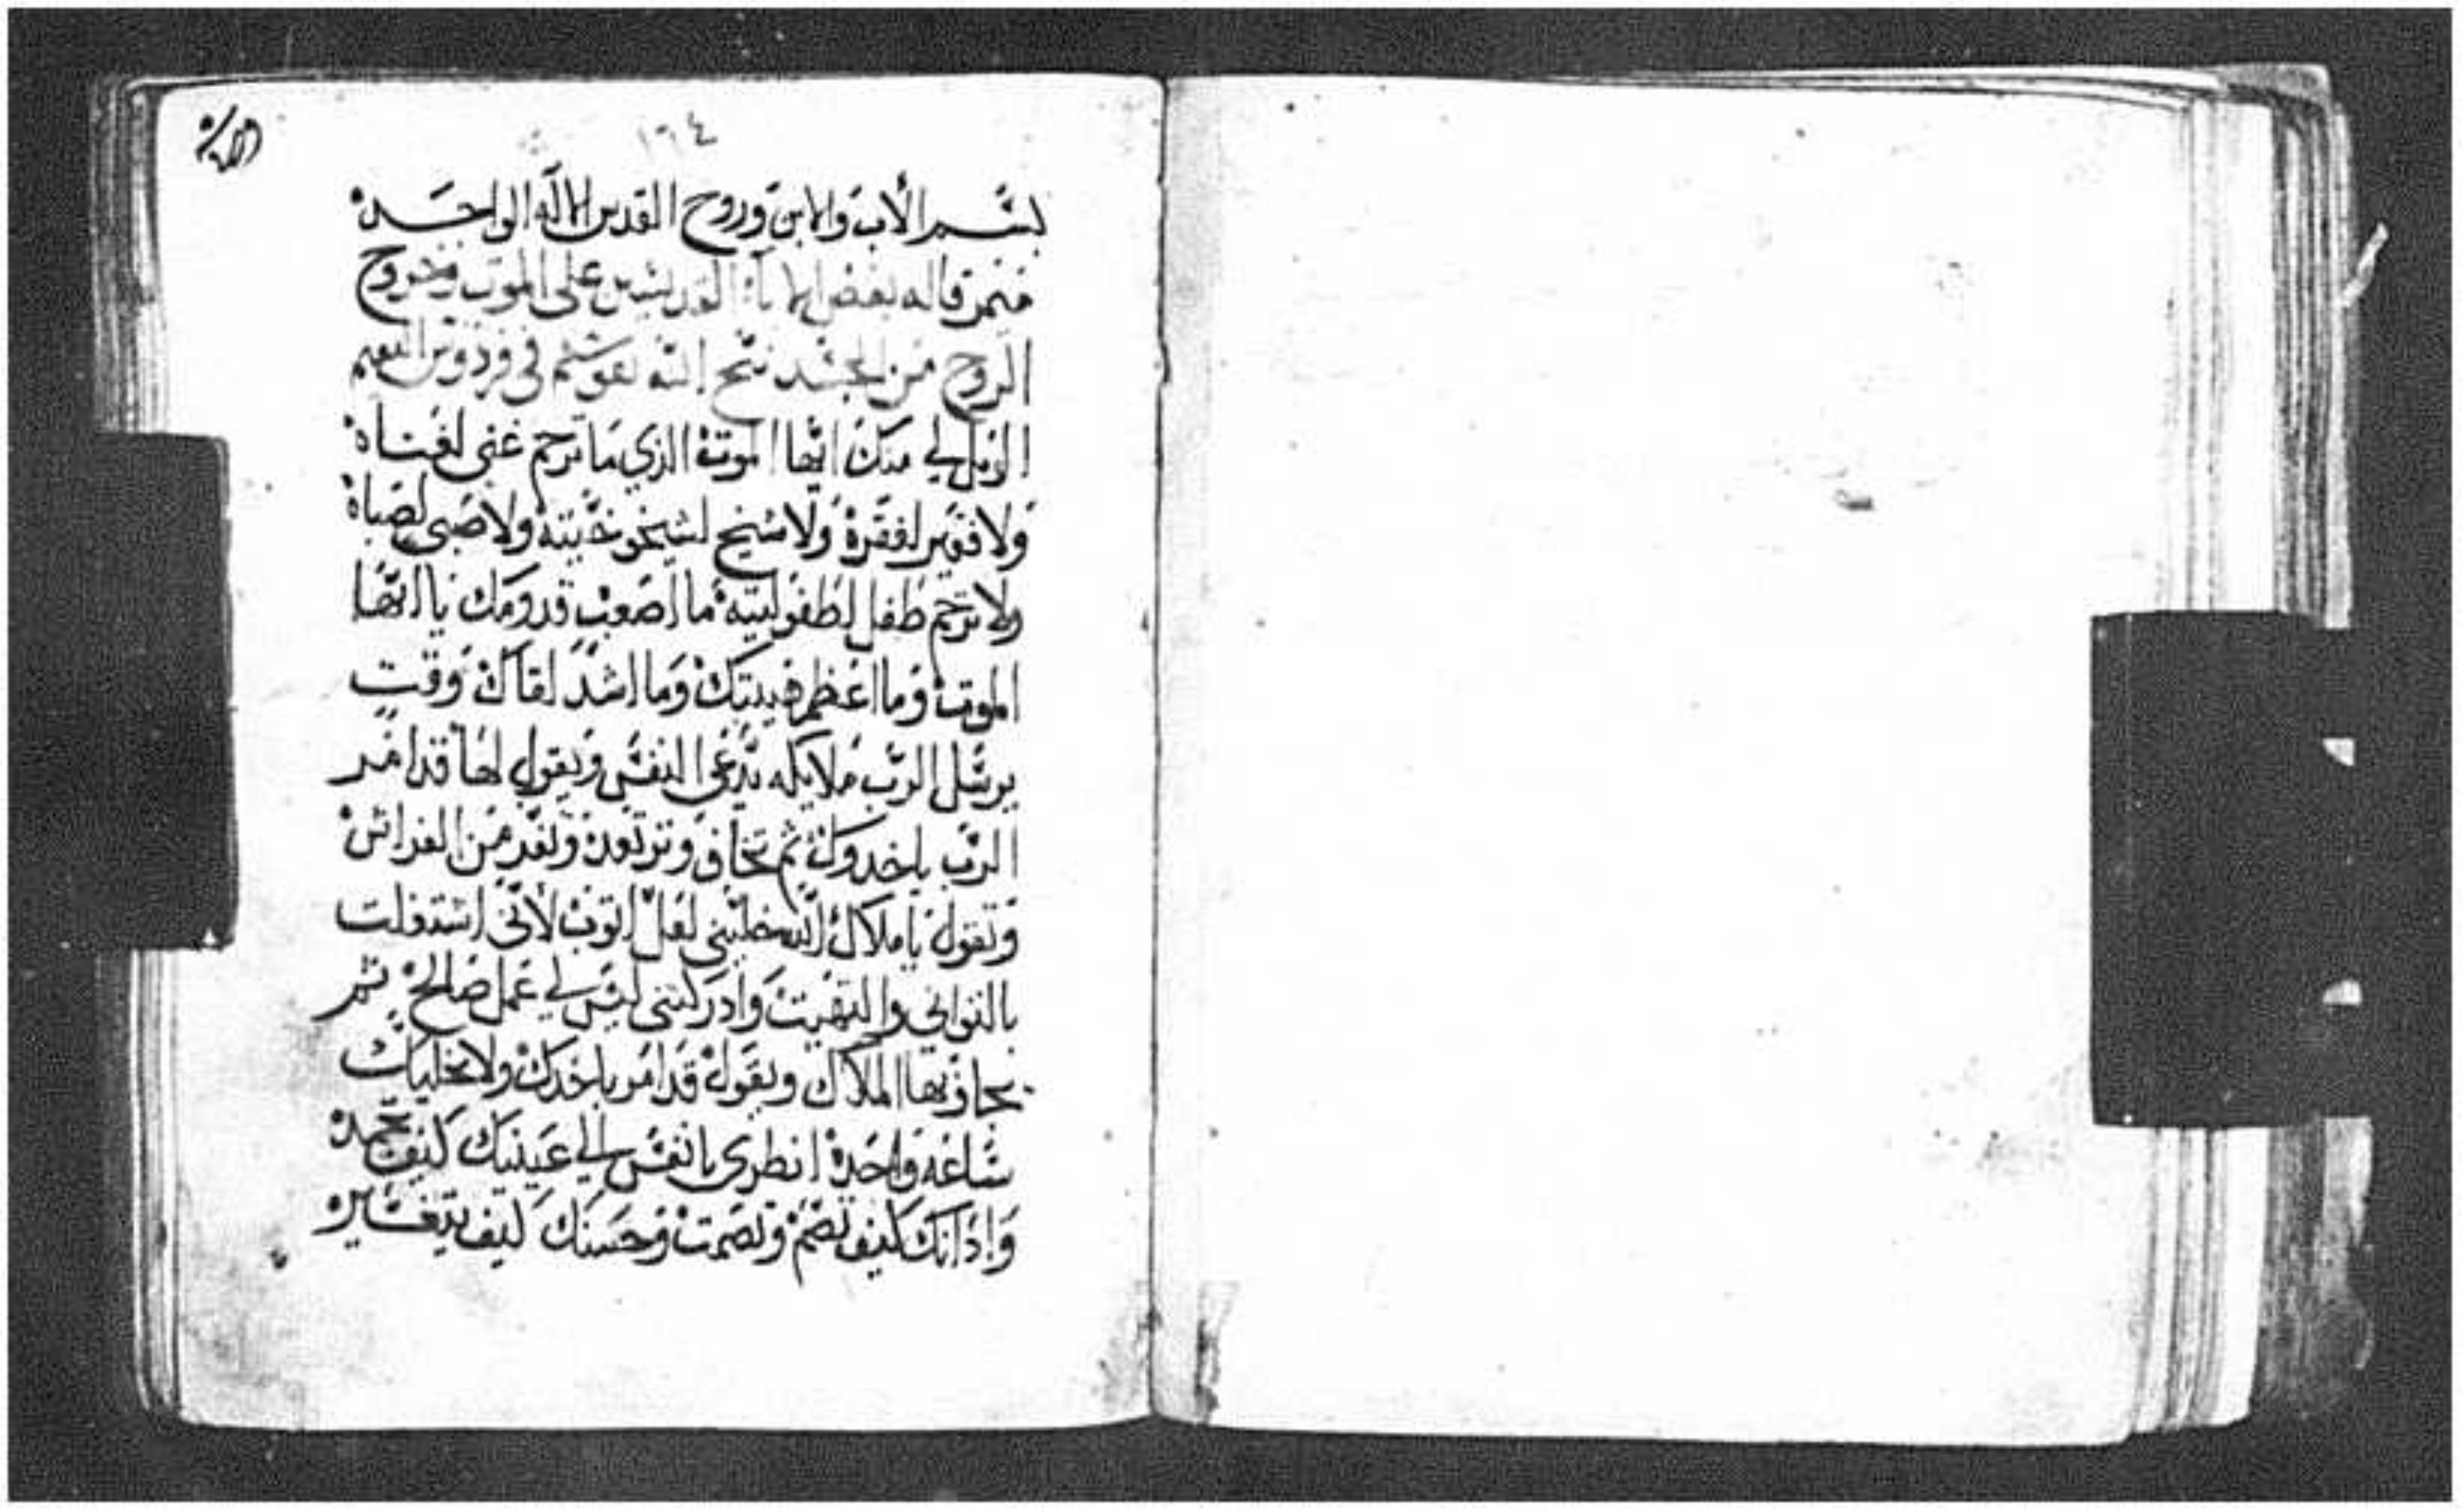 ١٦٤
بسم الاب والابن وروح القدس الاله الواحد
ميمر قاله بعض الابآء القديسين على الموت وخروج
الروح من الجسد نيح الله نفوسهم في فردوس النعيم
الويل لي منك ايها الموت الذي ما ترحم غني لغناه
ولا فقير لفقره ولا شيخ لشيخوخيته ولا صبي لصباه
ولا ترحم طفل لطفوليته ما اصعب قدومك يا ايها
الموت وما اعظم هيبتك وما اشد لقاك وقت
يرسل الرب ملايكه تدعي النفس ويقول لها قد امر
الرب ياخدوك ثم تخاف وترتعد وتفر من
وتقول يا ملاك الله خليني لعل اتوب لأني اشتغلت
بالتواني وادركتني ليس لي عمل صالح ثم
يجاوبها الملاك ويقول قد امر باخدك ولا نخليك
ساعه واحده انظري يا نفس الي عينيك كيف
واذانك كيف تصم وتصمت وحسنك كيف يتغير